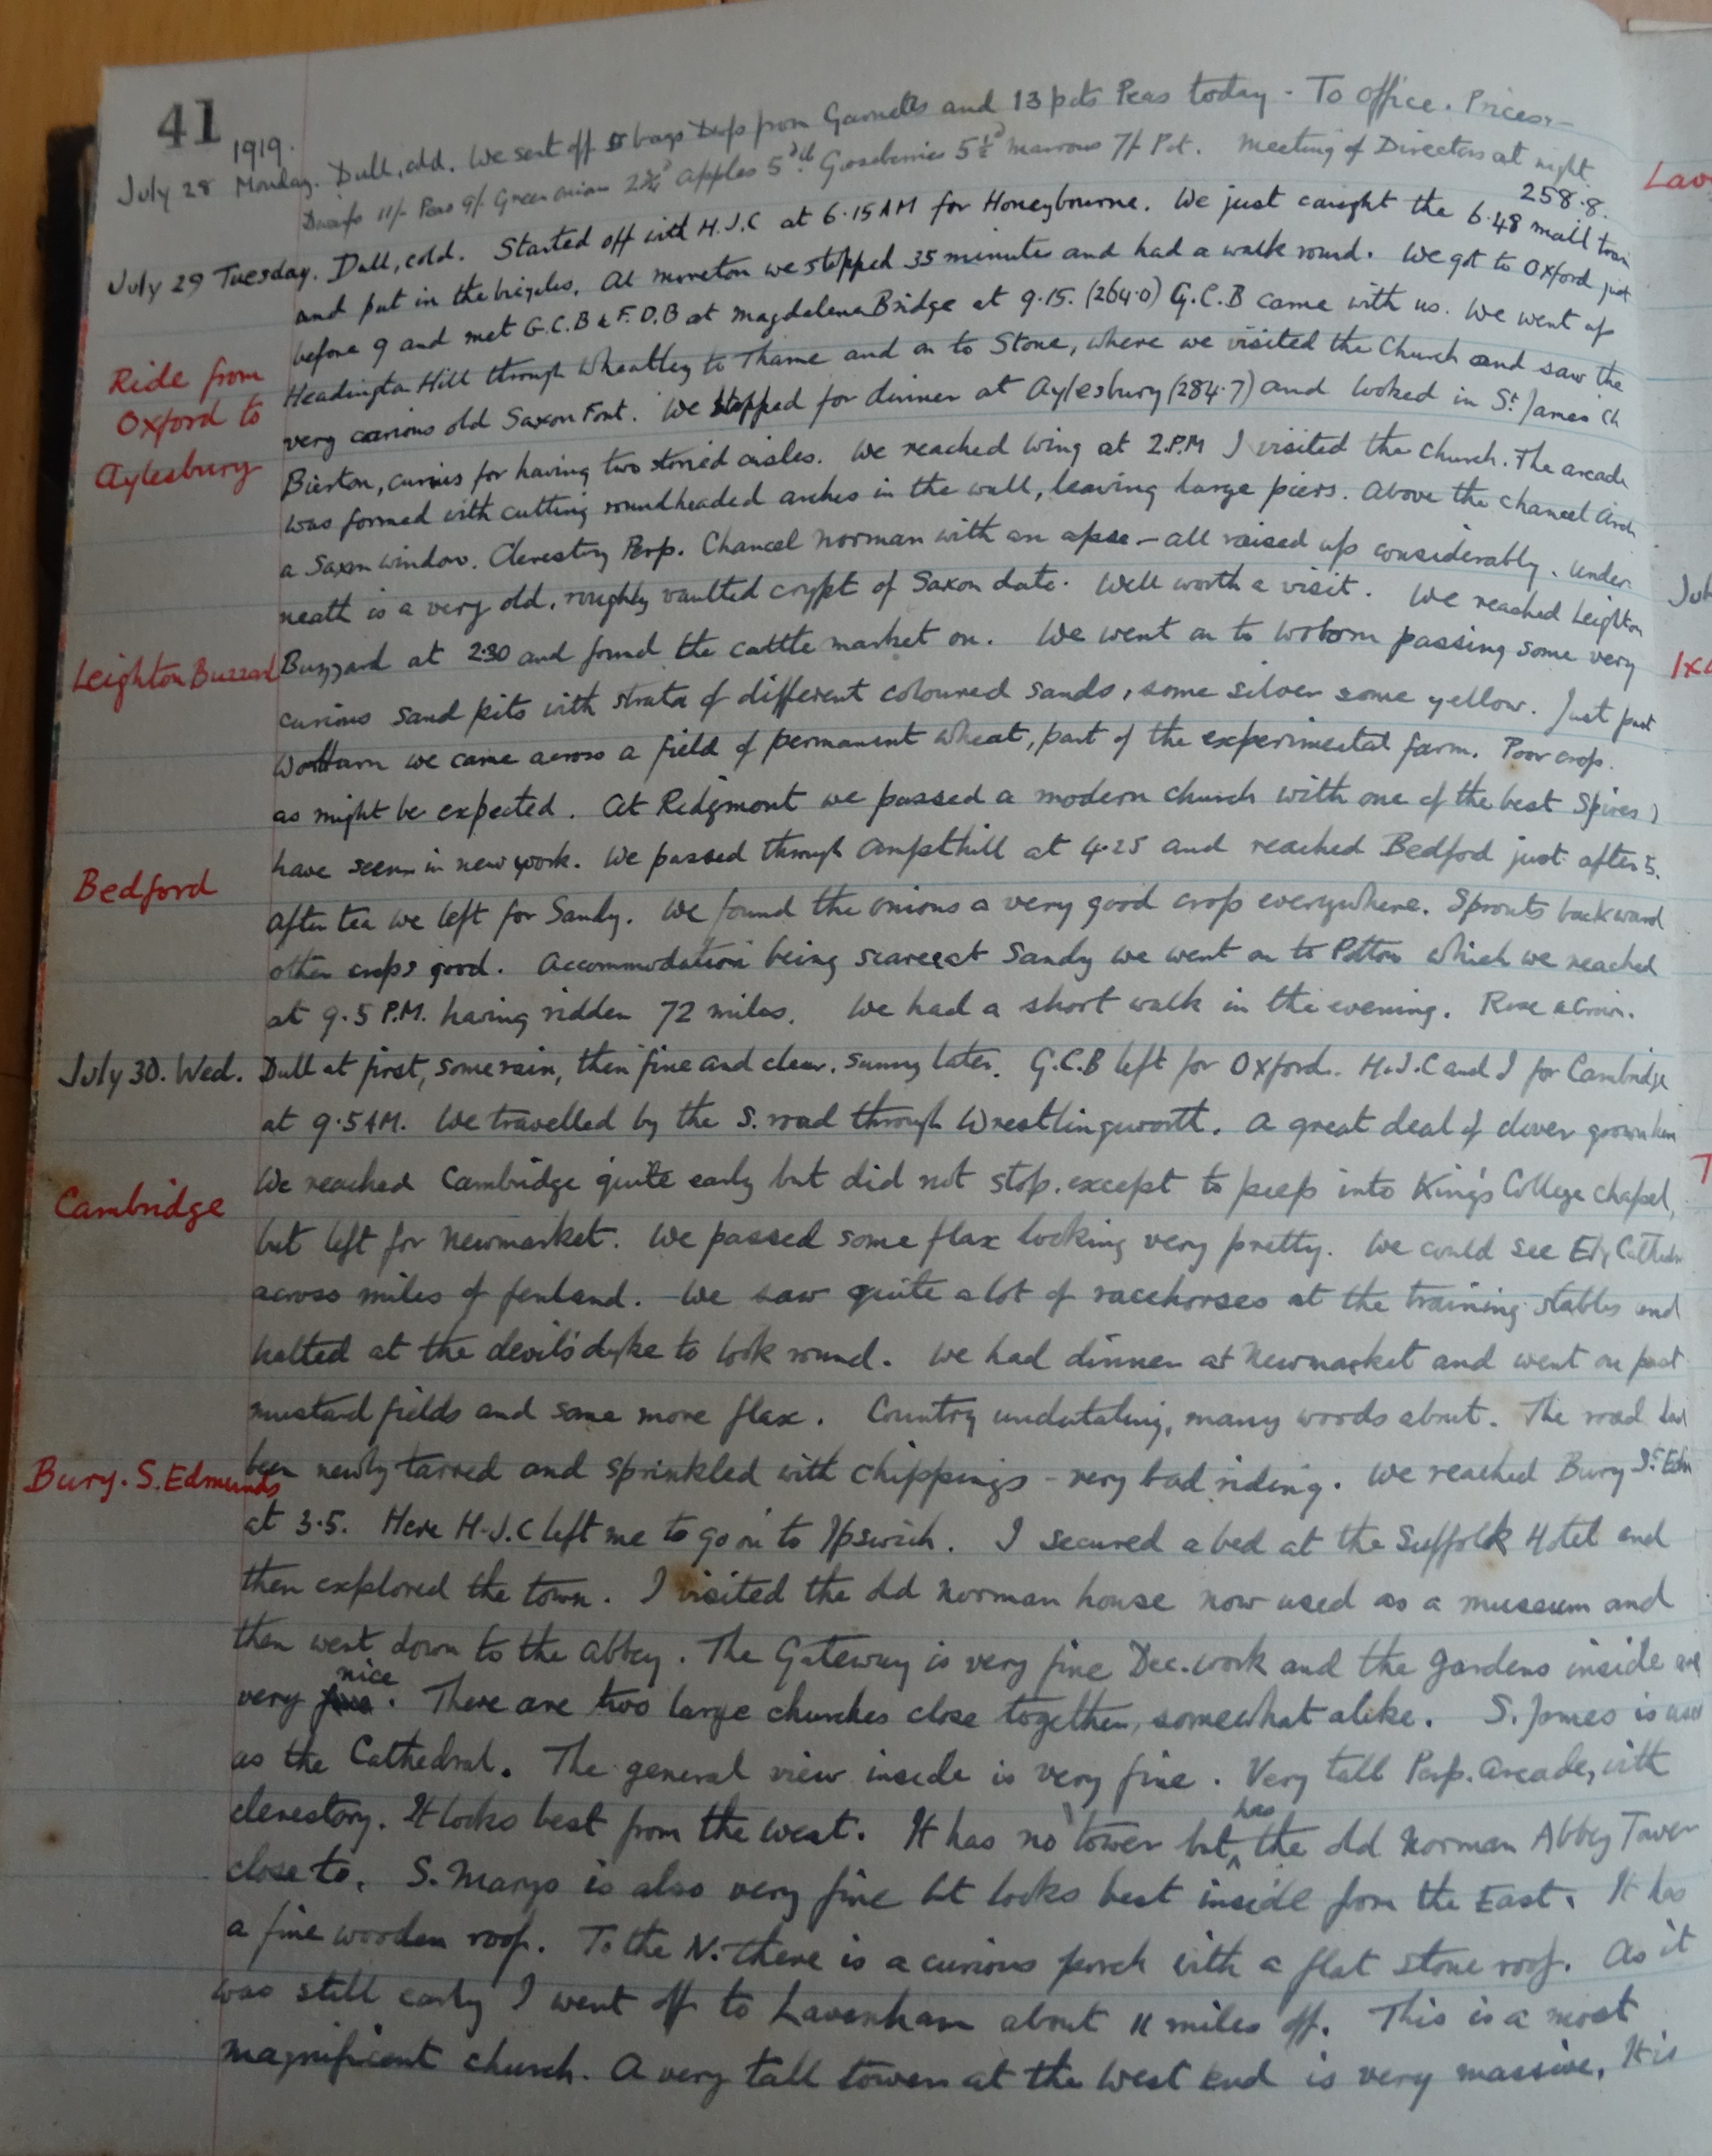 41
1919.
July 28 Monday. Dull, cold. We sent off bags from Garnetts and 13 pots Peas today - To office. Prices:-
Dwarfs 11/- Peas 9/- Green onion 2¾d Apples 5d lb. Gooseberries 5½d marrows 7/- Pot. Meeting of Directors at night
258.8.
July 29 Tuesday. Dull, cold. Started off with H.J.C at 6.15 AM for Honeybourne. We just caught the 6.48 mail train
and put in the bicycles. At moreton we stopped 35 minutes and had a walk round. We got to Oxford just
before 9 and met G.C.B & F.D.B at Magdalene Bridge at 9.15. (264.0) G.C.B came with us. We went up
Ride from
Oxford to
Aylesbury
Headington Hill through Wheatley to Thame and on to Stone, where we visited the Church and saw the
very curious old Saxon Font. We stopped for dinner at Aylesbury (284.7) and looked in St James Ch
Bierton, curious for having two storied aisles. We reached Wing at 2.P.M I visited the Church. The arcade
was formed with cutting roundheaded arches in the wall, leaving large piers. Above the chancel arch
a Saxon window. Clerestory Perp. Chancel norman with an apse - all raised up considerably. Under
neath is a very old, roughly vaulted crypt of Saxon date. Well worth a visit. We reached Leighton
Leighton Buzzard
Buzzard at 2.30 and found the cattle market on. We went on to Woborn passing some very
curious sand pits with strata of different coloured sands, some silver some yellow. Just past
Woburn we came across a field of permanent wheat, part of the experimental farm. Poor crop.
as might be expected. At Ridgmont we passed a modern church with one of the best spires I
have seen in new work. We passed through Ampthill at 4.25 and reached Bedford just after 5.
Bedford
After tea we left for Sandy. We found the onions a very good crop everywhere. Sprouts backward
other crops good. Accommodation being scarce at Sandy we went on to Potton which we reached
at 9.5 P.M. having ridden 72 miles. We had a short walk in the evening. Rose & Crown.
July 30. Wed. Dull at first, some rain, then fine and clear, sunny later. G.C.B left for Oxford. H.J.C and I for Cambridge
at 9.5 AM. We travelled by the S. road through Wrestlingworth. A great deal of clover grown here
Cambridge
We reached Cambridge quite early but did not stop, except to peep into King's College Chapel,
but left for Newmarket. We passed some flax looking very pretty. We could see Ely Cathedr
across miles of fenland. We saw quite a lot of racehorses at the training stables and
halted at the devil's dyke to look round. We had dinner at Newmarket and went on past
mustard fields and some more flax. Country undulating, many woods about. The road had
Bury. S. Edmunds
been newly tarred and sprinkled with chippings - very bad riding. We reached Bury St. Edm
at 3.5. Here H.J.C left me to go on to Ipswich. I secured a bed at the Suffolk Hotel and
then explored the town. I visited the old norman house now used as a museum and
then went down to the Abbey. The Gateway is very fine Dec. work and the gardens inside are
nice
very fine. There are two large churches close together, somewhat alike. S. James is used
as the Cathedral. The general view inside is very fine. Very tall Perp. arcade, with
clerestory. It looks best from the west. It has no tower but has the old Norman Abbey Tower
close to. S. Marys is also very fine but looks best inside from the East. It has
a fine wooden roof. To the N. there is a curious porch with a flat stone roof. As it
was still early I went off to Lavenham about 11 miles off. This is a most
magnificent church. A very tall tower at the West End is very massive. It is